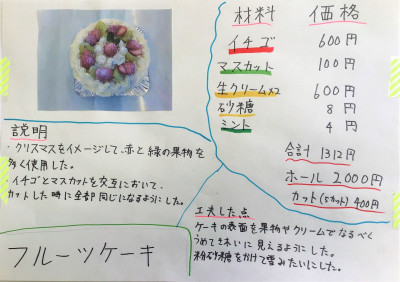 材料 価格
イチゴ 600円
マスカット 100円
生クリーム×2 600円
砂糖 8円
ミント 4円
合計 1312円
ホール 2000円
カット(5カット) 400円
説明
・クリスマスをイメージして、赤と緑の果物を
多く使用した。
・イチゴとマスカットを交互において、
カットした時に全部同じになるようにした。
工夫した点
ケーキの表面を果物やクリームでなるべく
うめてきれいに見えるようにした。
粉砂糖をかけて雪みたいにした。
フルーツケーキ